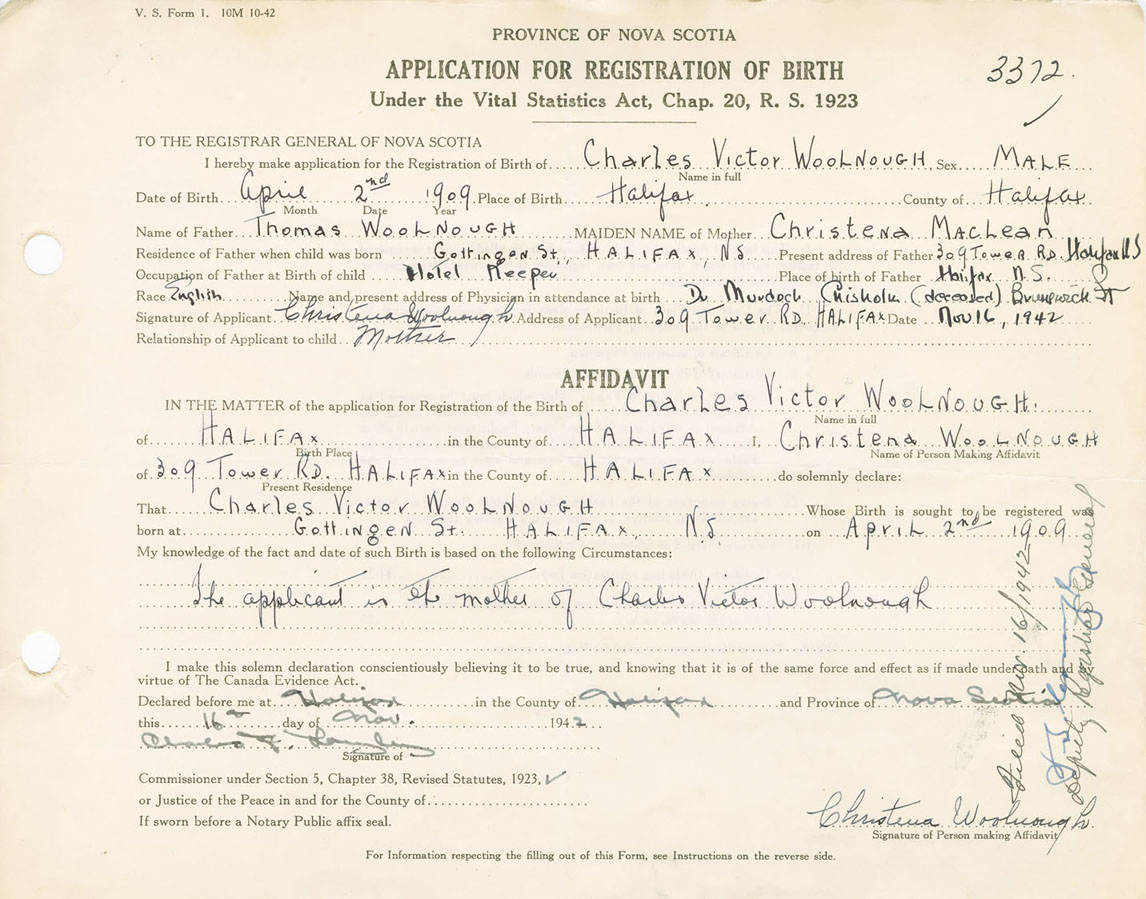 V. S. Form 1. 10M 10-42
PROVINCE OF NOVA SCOTIA
APPLICATION FOR REGISTRATION OF BIRTH
3372.
Under the Vital Statistics Act, Chap. 20, R. S. 1923
TO THE REGISTRAR GENERAL OF NOVA SCOTIA
I hereby make application for the Registration of Birth of Charles Victor WOOLNOUGH, Sex MALE
Name in full
Date of Birth April 2nd 1909 Place of Birth Halifax County of Halifax
Month Date Year
Name of Father Thomas WOOLNOUGH MAIDEN NAME of Mother Christena MacLean
Residence of Father when child was born Gottingen St., HALIFAX, NS Present address of Father 309 Tower RD. Halifax N S
Occupation of Father at Birth of child Hotel Keeper Place of birth of Father Halifax N. S.
Race English Name and present address of Physician in attendance at birth Dr Murdoch Chisholm (deceased) Brunswick St
Signature of Applicant Christena Woolnough Address of Applicant 309 Tower RD. HALIFAX Date Nov 16, 1942
Relationship of Applicant to child Mother
AFFIDAVIT
IN THE MATTER of the application for Registration of the Birth of Charles Victor WOOLNOUGH.
Name in full
of HALIFAX in the County of HALIFAX I, Christena WOOLNOUGH
Birth Place Name of Person Making Affidavit
of 309 Tower RD. HALIFAX in the County of HALIFAX do solemnly declare:
Present Residence
That Charles Victor WOOLNOUGH Whose Birth is sought to be registered was
born at Gottingen St. HALIFAX, N.S on April 2nd 1909
My knowledge of the fact and date of such Birth is based on the following Circumstances:
The applicant is the mother of Charles Victor Woolnough
I make this solemn declaration conscientiously believing it to be true, and knowing that it is of the same force and effect as if made under oath and by
virtue of The Canada Evidence Act.
Declared before me at Halifax in the County of Halifax and Province of Nova Scotia
this 16th day of Nov. 1942
Charles F.
Signature of
Commissioner under Section 5, Chapter 38, Revised Statutes, 1923, ✓
or Justice of the Peace in and for the County of
If sworn before a Notary Public affix seal.
Christena Woolnough.
Signature of Person making Affidavit
For Information respecting the filling out of this Form, see Instructions on the reverse side.
Filed Nov. 16/1942
Deputy Registrar General